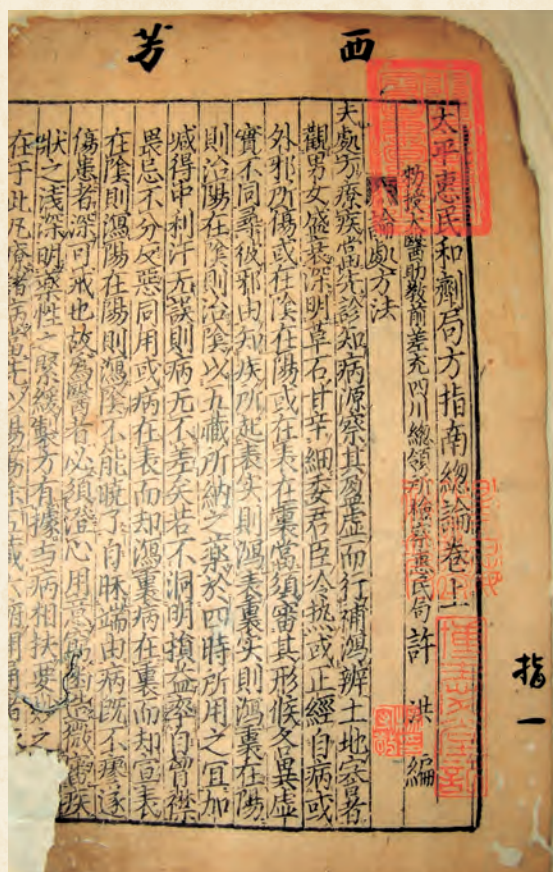 西芳
太平惠民和劑局方指南總論卷上
敕授太醫助教前差充四川總領所檢察惠民局許洪編
論處方法
夫處方療疾當先診知病源察其盈虛而行補瀉辨土地寒暑
觀男女盛衰深明草石甘辛細委君臣冷熱或正經自病或
外邪所傷或在陰在陽或在表在裏當須審其形候各異虛
實不同尋彼邪由知疾所起表實則瀉表裏實則瀉裏在陽
則治陽在陰則治陰以五臟所納之藥於四時所用之宜加
減得中利汗无誤則病无不差矣若不洞明損益率自胷襟
畏忌不分反惡同用或病在表而却瀉裏病在裏而却宣表
在陰則瀉陽在陽則瀉陰不能曉了自昧端由病既不瘳遂
傷患者深可戒也故爲醫者必須澄心用意造微審疾
狀之淺深明藥性之緊緩製方有據与病相扶要之
在于此凡療諸病當先以
指一